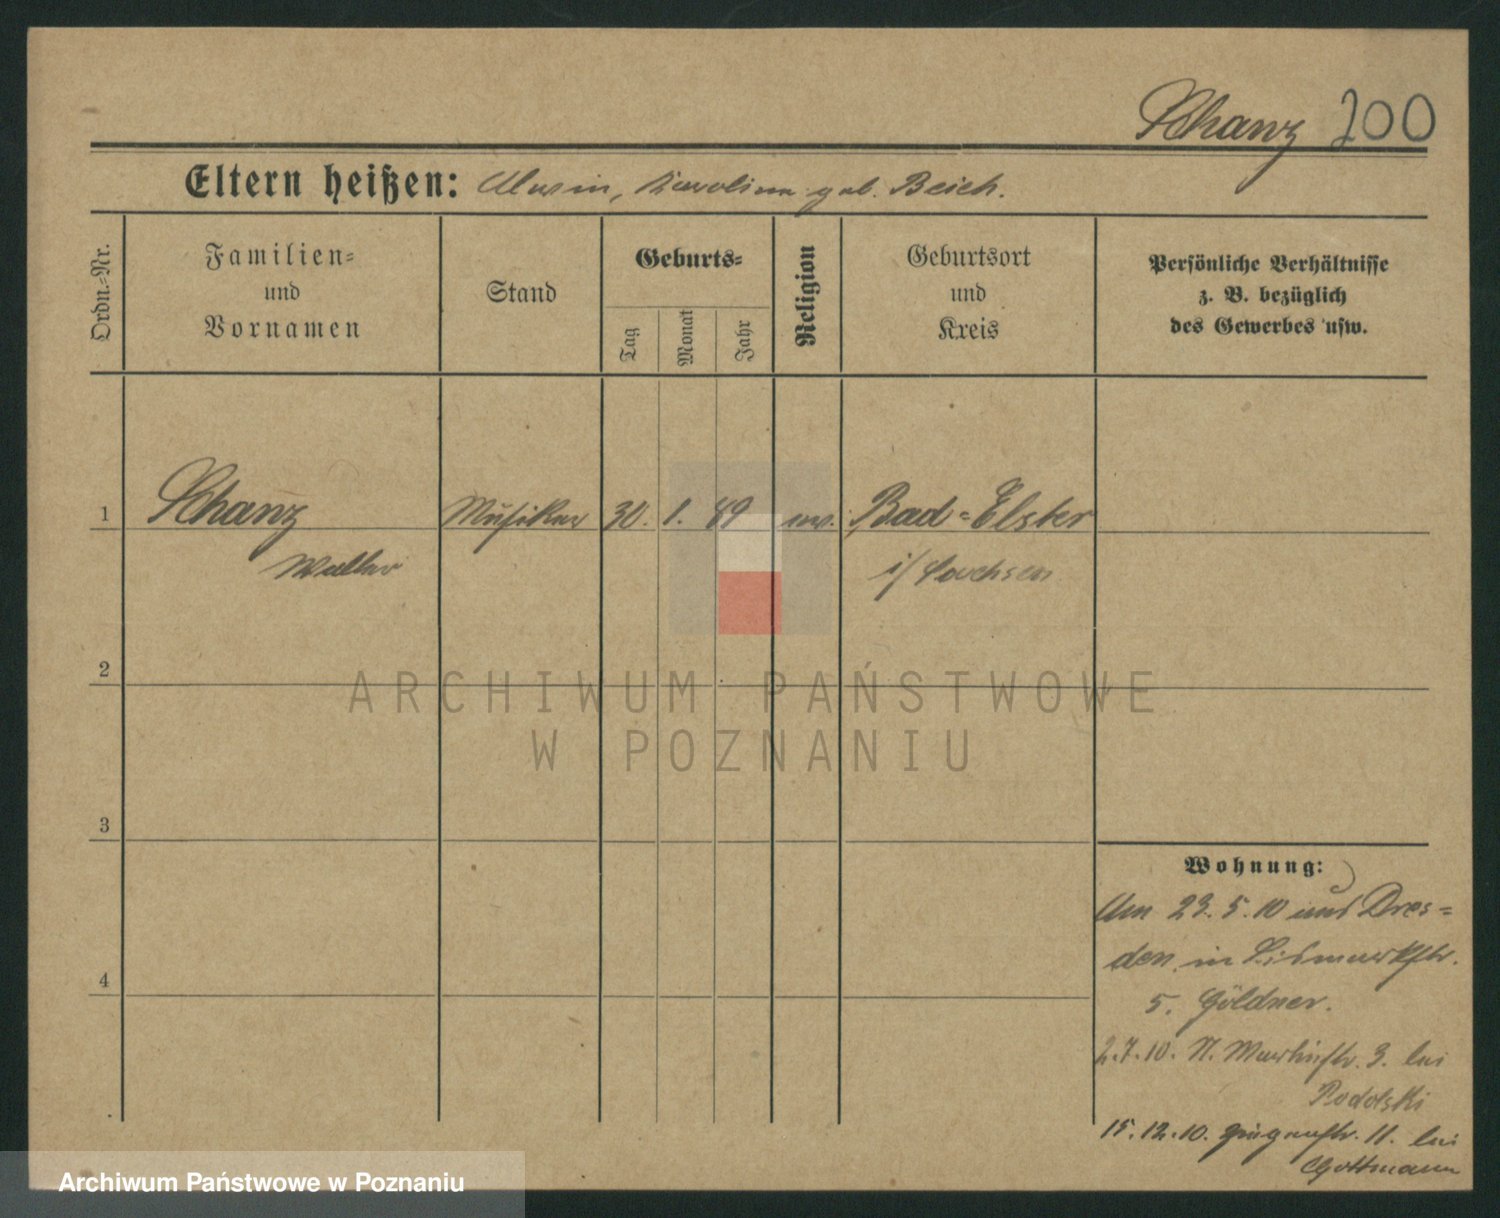 Schanz 200
Eltern heißen: Karoline geb. Beich.
Ordn.-Nr.
Familien-
und
Vornamen
Stand
Geburts-
Tag
Monat
Jahr
Religion
Geburtsort
und
Kreis
Persönliche Verhältnisse
z. B. bezüglich
des Gewerbes usw.
1 Schanz Musiker 30. 1. 89 ev. Bad-Elster
Walter i/ Sachsen
2
3
4
Wohnung:
Am 23.5.10 aus Dres-
den in Bismarkstr.
5. Göldner.
2.7.10. N. Martinstr. 3. bei
Podolski
15.12.10. 11. bei
Guttmann
ARCHIWUM PAŃSTWOWE
W POZNANIU
Archiwum Państwowe w Poznaniu